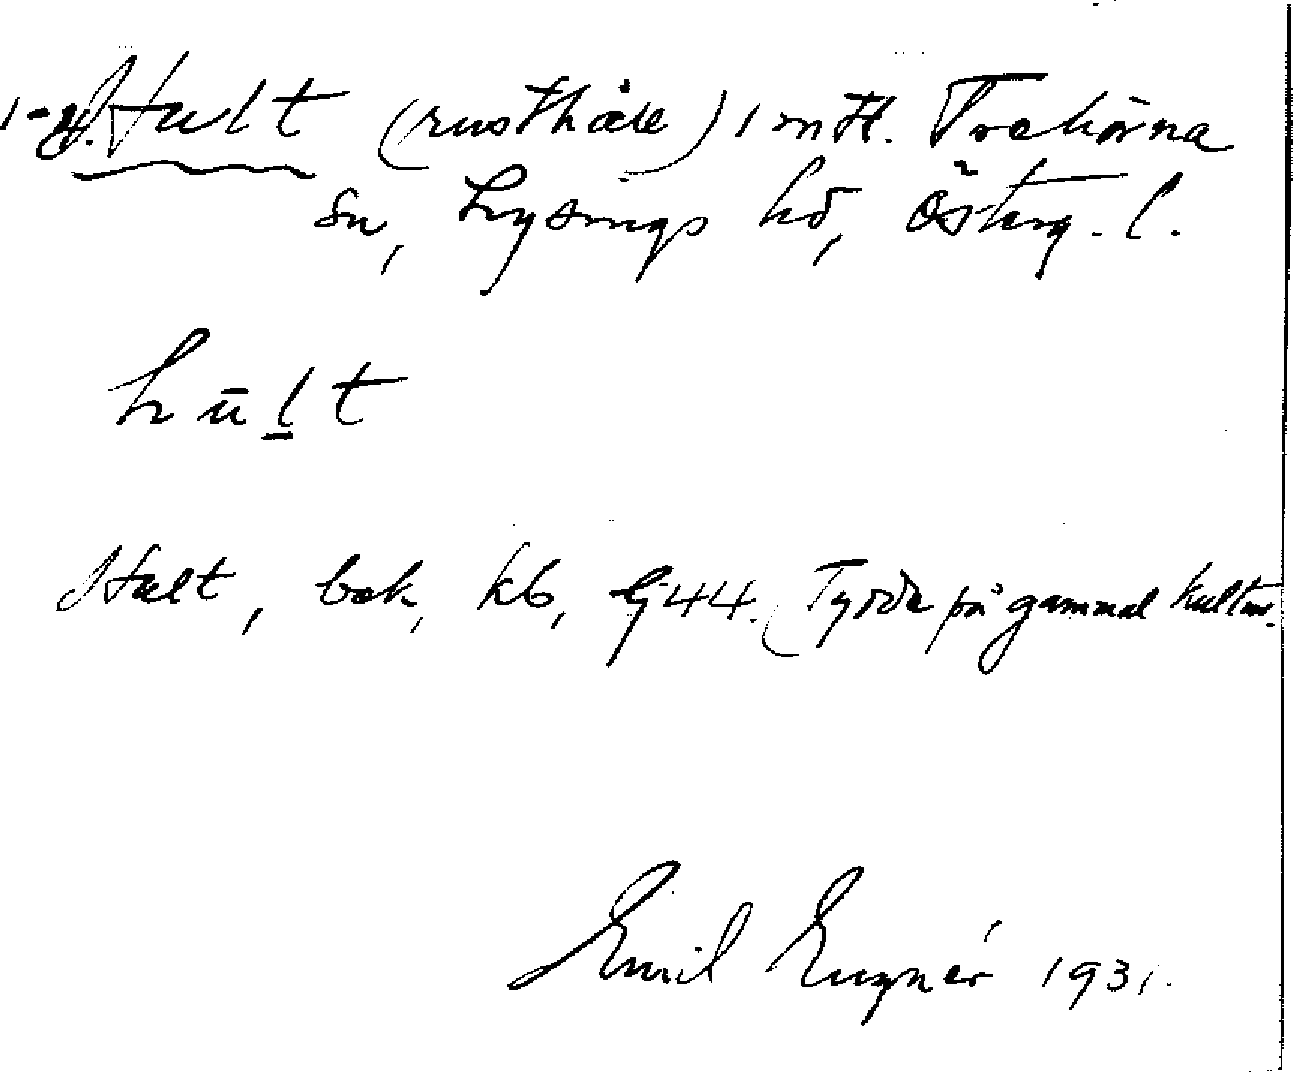 1-gd. Hult (rusthåll) 1 mtl. Trehörna
sn, Lysings hd, Österg. l.
hūḻt
Hult, bok, kb, Gj44. (Tyder på gammal kultur.
Emil Eugnér 1931.